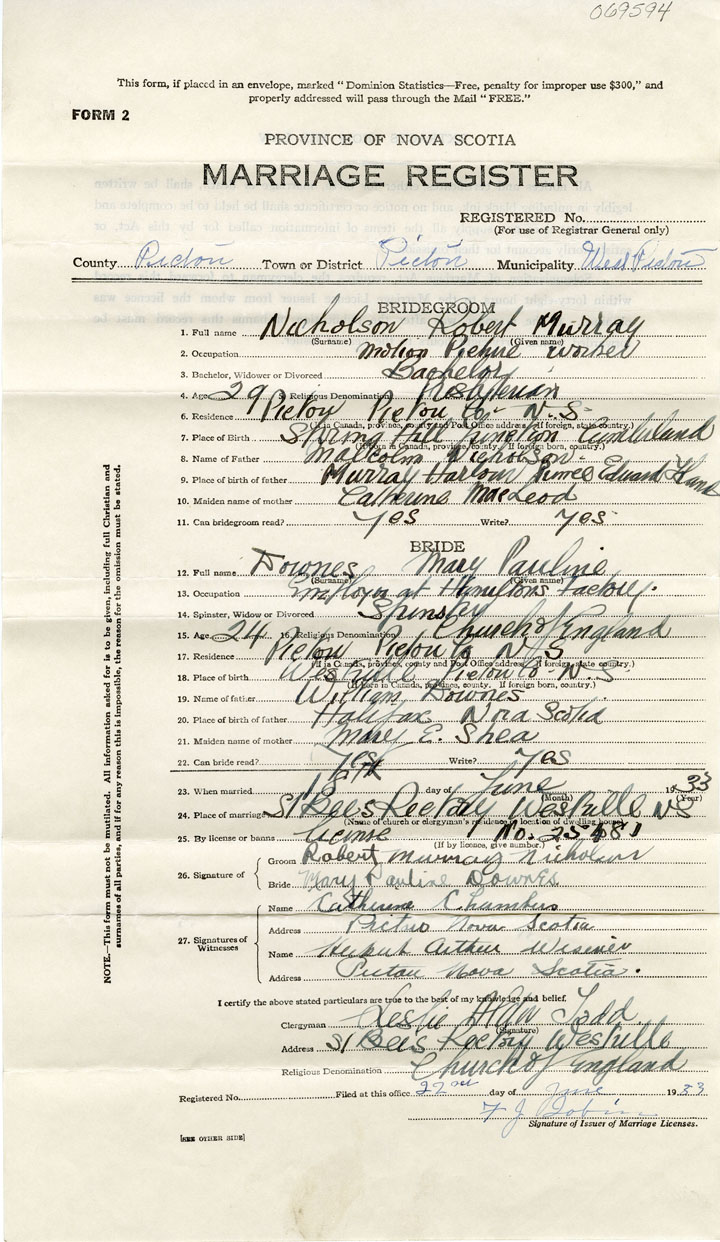 069594
This form, if placed in an envelope, marked "Dominion Statistics—Free, penalty for improper use $300," and
properly addressed will pass through the Mail "FREE."
FORM 2
PROVINCE OF NOVA SCOTIA
MARRIAGE REGISTER
REGISTERED No.
(For use of Registrar General only)
County Pictou Town or District Pictou Municipality West Pictou
BRIDEGROOM
1. Full name Nicholson Robert Murray
(Surname) (Given name)
2. Occupation Motion Picture worker
3. Bachelor, Widower or Divorced Bachelor
4. Age 29 5. Religious Denomination Presbyterian
6. Residence Pictou Pictou Co N.S.
(If in Canada, province, county and Post Office address. If foreign, state country.)
7. Place of Birth Spring Hill Junction Cumberland
(If born in Canada, province, county. If foreign born, country.)
8. Name of Father Malcolm Nicholson
9. Place of birth of father Murray Harbour Prince Edward Island
10. Maiden name of mother Catherine MacLeod
11. Can bridegroom read? Yes Write? Yes
BRIDE
12. Full name Downes Mary Pauline
(Surname) (Given name)
13. Occupation Employee at Hamiltons Factory.
14. Spinster, Widow or Divorced Spinster
15. Age 24 16. Religious Denomination Church of England
17. Residence Pictou Pictou Co N.S
(If in Canada, province, county and Post Office address. If foreign, state country.)
18. Place of birth Westville Pictou Co N.S.
(If born in Canada, province, county. If foreign born, country.)
19. Name of father William Downes
20. Place of birth of father Halifax Nova Scotia
21. Maiden name of mother Mary E. Shea
22. Can bride read? Yes Write? Yes
23. When married 18th day of June 1933
(Month) (Year)
24. Place of marriage St Bees Rectory Westville NS
(Name of church or clergyman's residence, or location of dwelling house)
25. By license or banns License No.
(If by licence, give number.)
26. Signature of
Groom Robert Murray Nicholson
Bride Mary Pauline Downes
27. Signatures of Witnesses
Name Catherine Chambers
Address Pictou Nova Scotia
Name Arthur
Address Pictou Nova Scotia.
I certify the above stated particulars are true to the best of my knowledge and belief.
Clergyman Leslie Todd
(Signature)
Address St Bees Rectory Westville
Religious Denomination Church of England
Registered No. Filed at this office 22nd day of June 1933
F J
Signature of Issuer of Marriage Licenses.
[SEE OTHER SIDE]
NOTE.—This form must not be mutilated. All information asked for is to be given, including full Christian and
surnames of all parties, and if for any reason this is impossible, the reason for the omission must be stated.